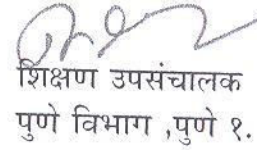 शिक्षण उपसंचालक
पुणे विभाग ,पुणे १.